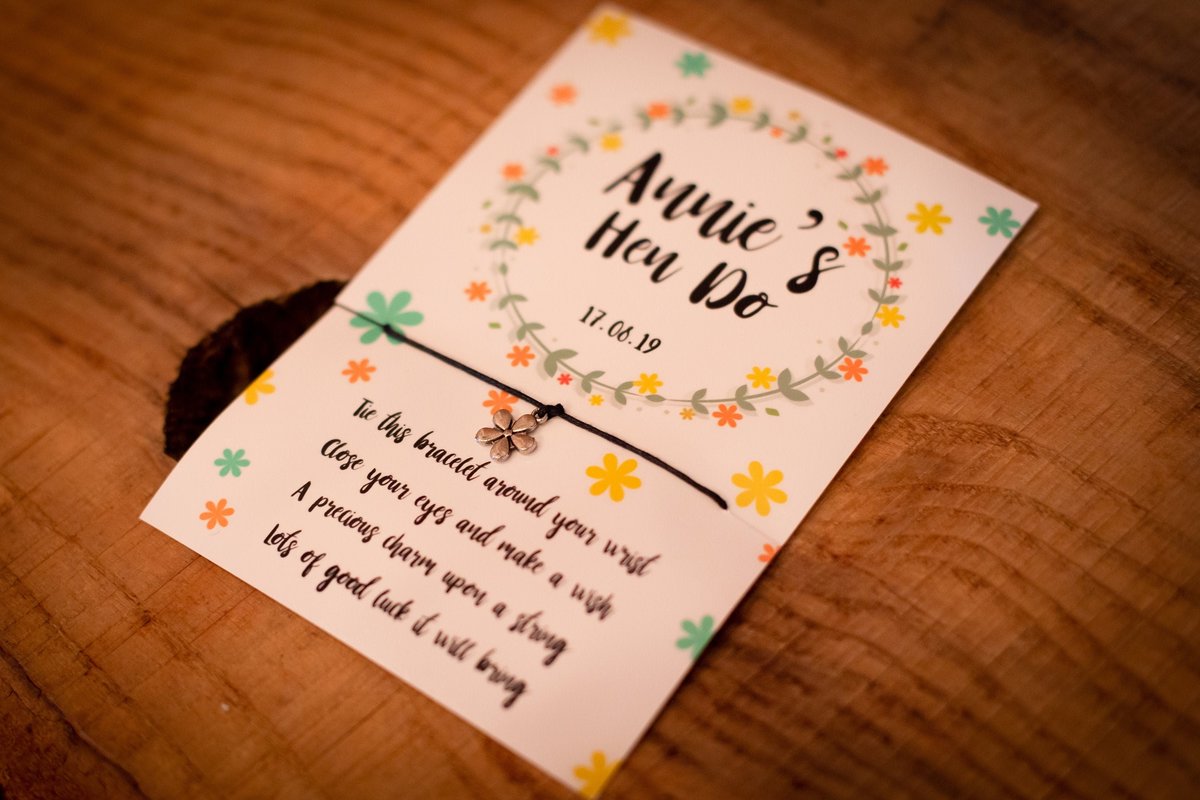 Annie's
Hen Do
17.06.19
Tie this bracelet around your wrist
Close your eyes and make a wish
A precious charm upon a string
Lots of good luck it will bring